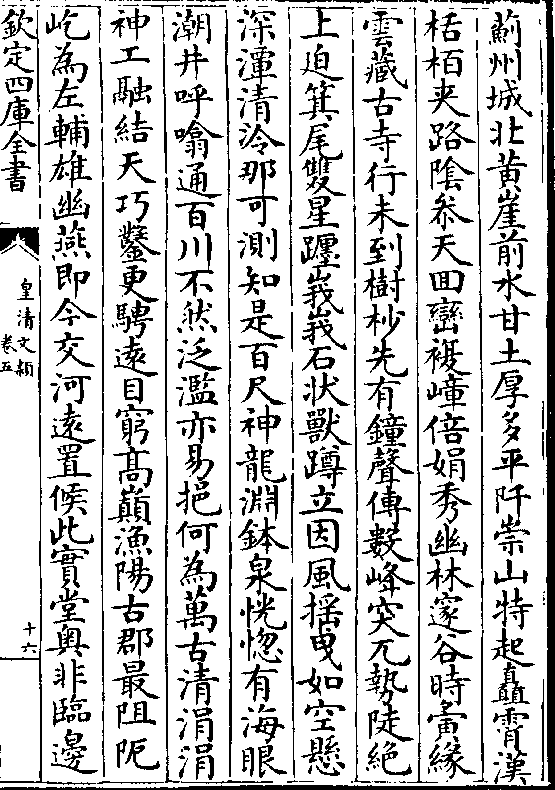 薊州城北黄崖前水甘土厚多平阡崇山特起矗霄漢
栝栢夾路陰叅天囬巒複嶂倍娟秀幽林邃谷時夤緣
雲藏古寺行未到樹杪先有鐘聲傳數峰突兀勢陡絶
上迫箕尾雙星躔峩峩石状獸蹲立因風揺曵如空懸
深潭清泠那可測知是百尺神龍淵鉢泉恍惚有海眼
潮井呼噏通百川不然泛濫亦易挹何為萬古清涓涓
神工融結天巧鑿更騁遠目窮髙巔漁陽古郡最阻阨
屹為左輔雄幽燕即今交河遠置候此實堂奥非臨邊
欽定四庫全書
皇清文穎
卷五
十六